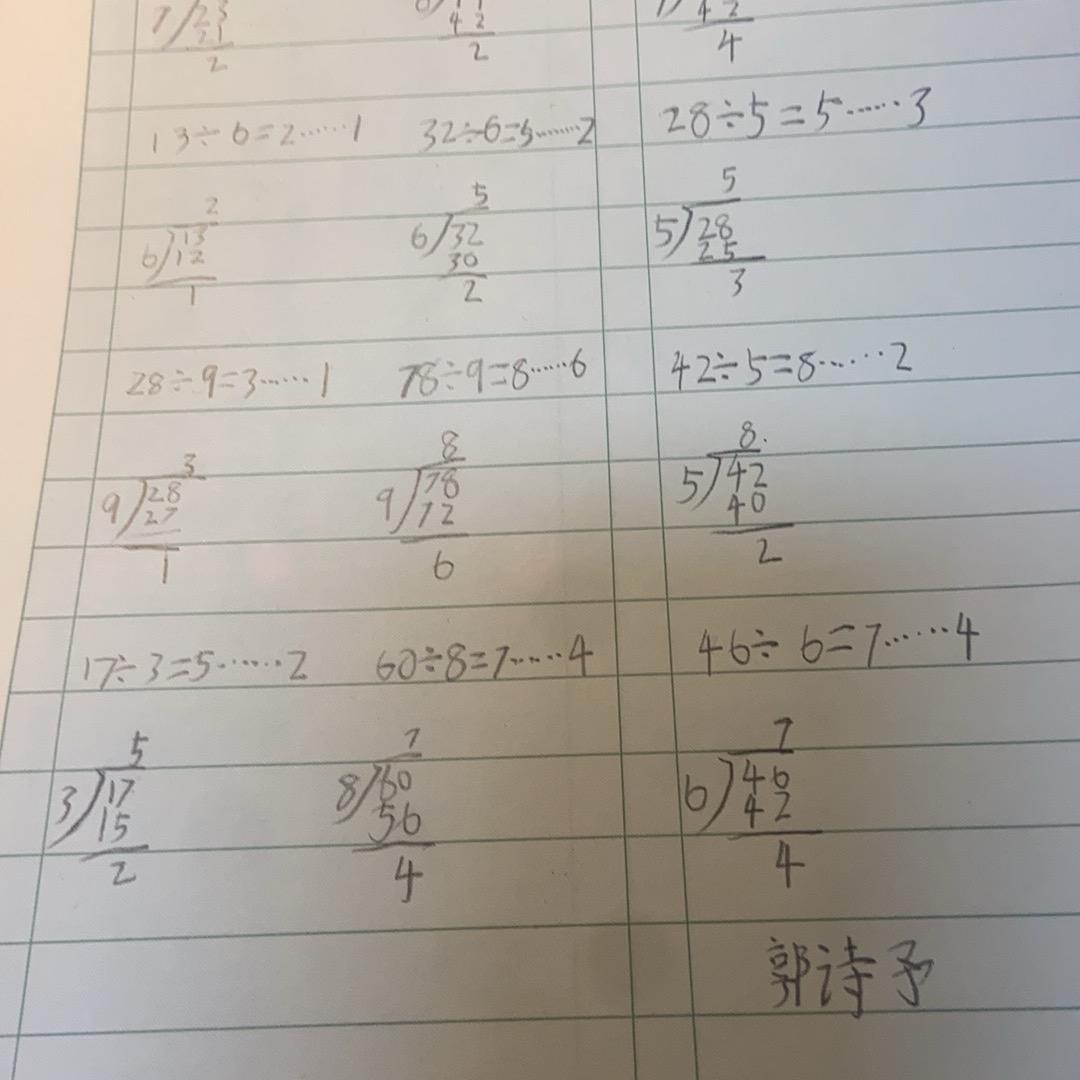 7 23
21 42 42
2 2 4
13÷6=2……1 32÷6=5……2 28÷5=5……3
2 5 5
6 13 6 32 5 28
12 30 25
1 2 3
28÷9=3……1 78÷9=8……6 42÷5=8……2
3 8 8
9 28 9 78 5 42
27 72 40
1 6 2
17÷3=5……2 60÷8=7……4 46÷6=7……4
5 7 7
3 17 8 60 6 46
15 56 42
2 4 4
郭诗予